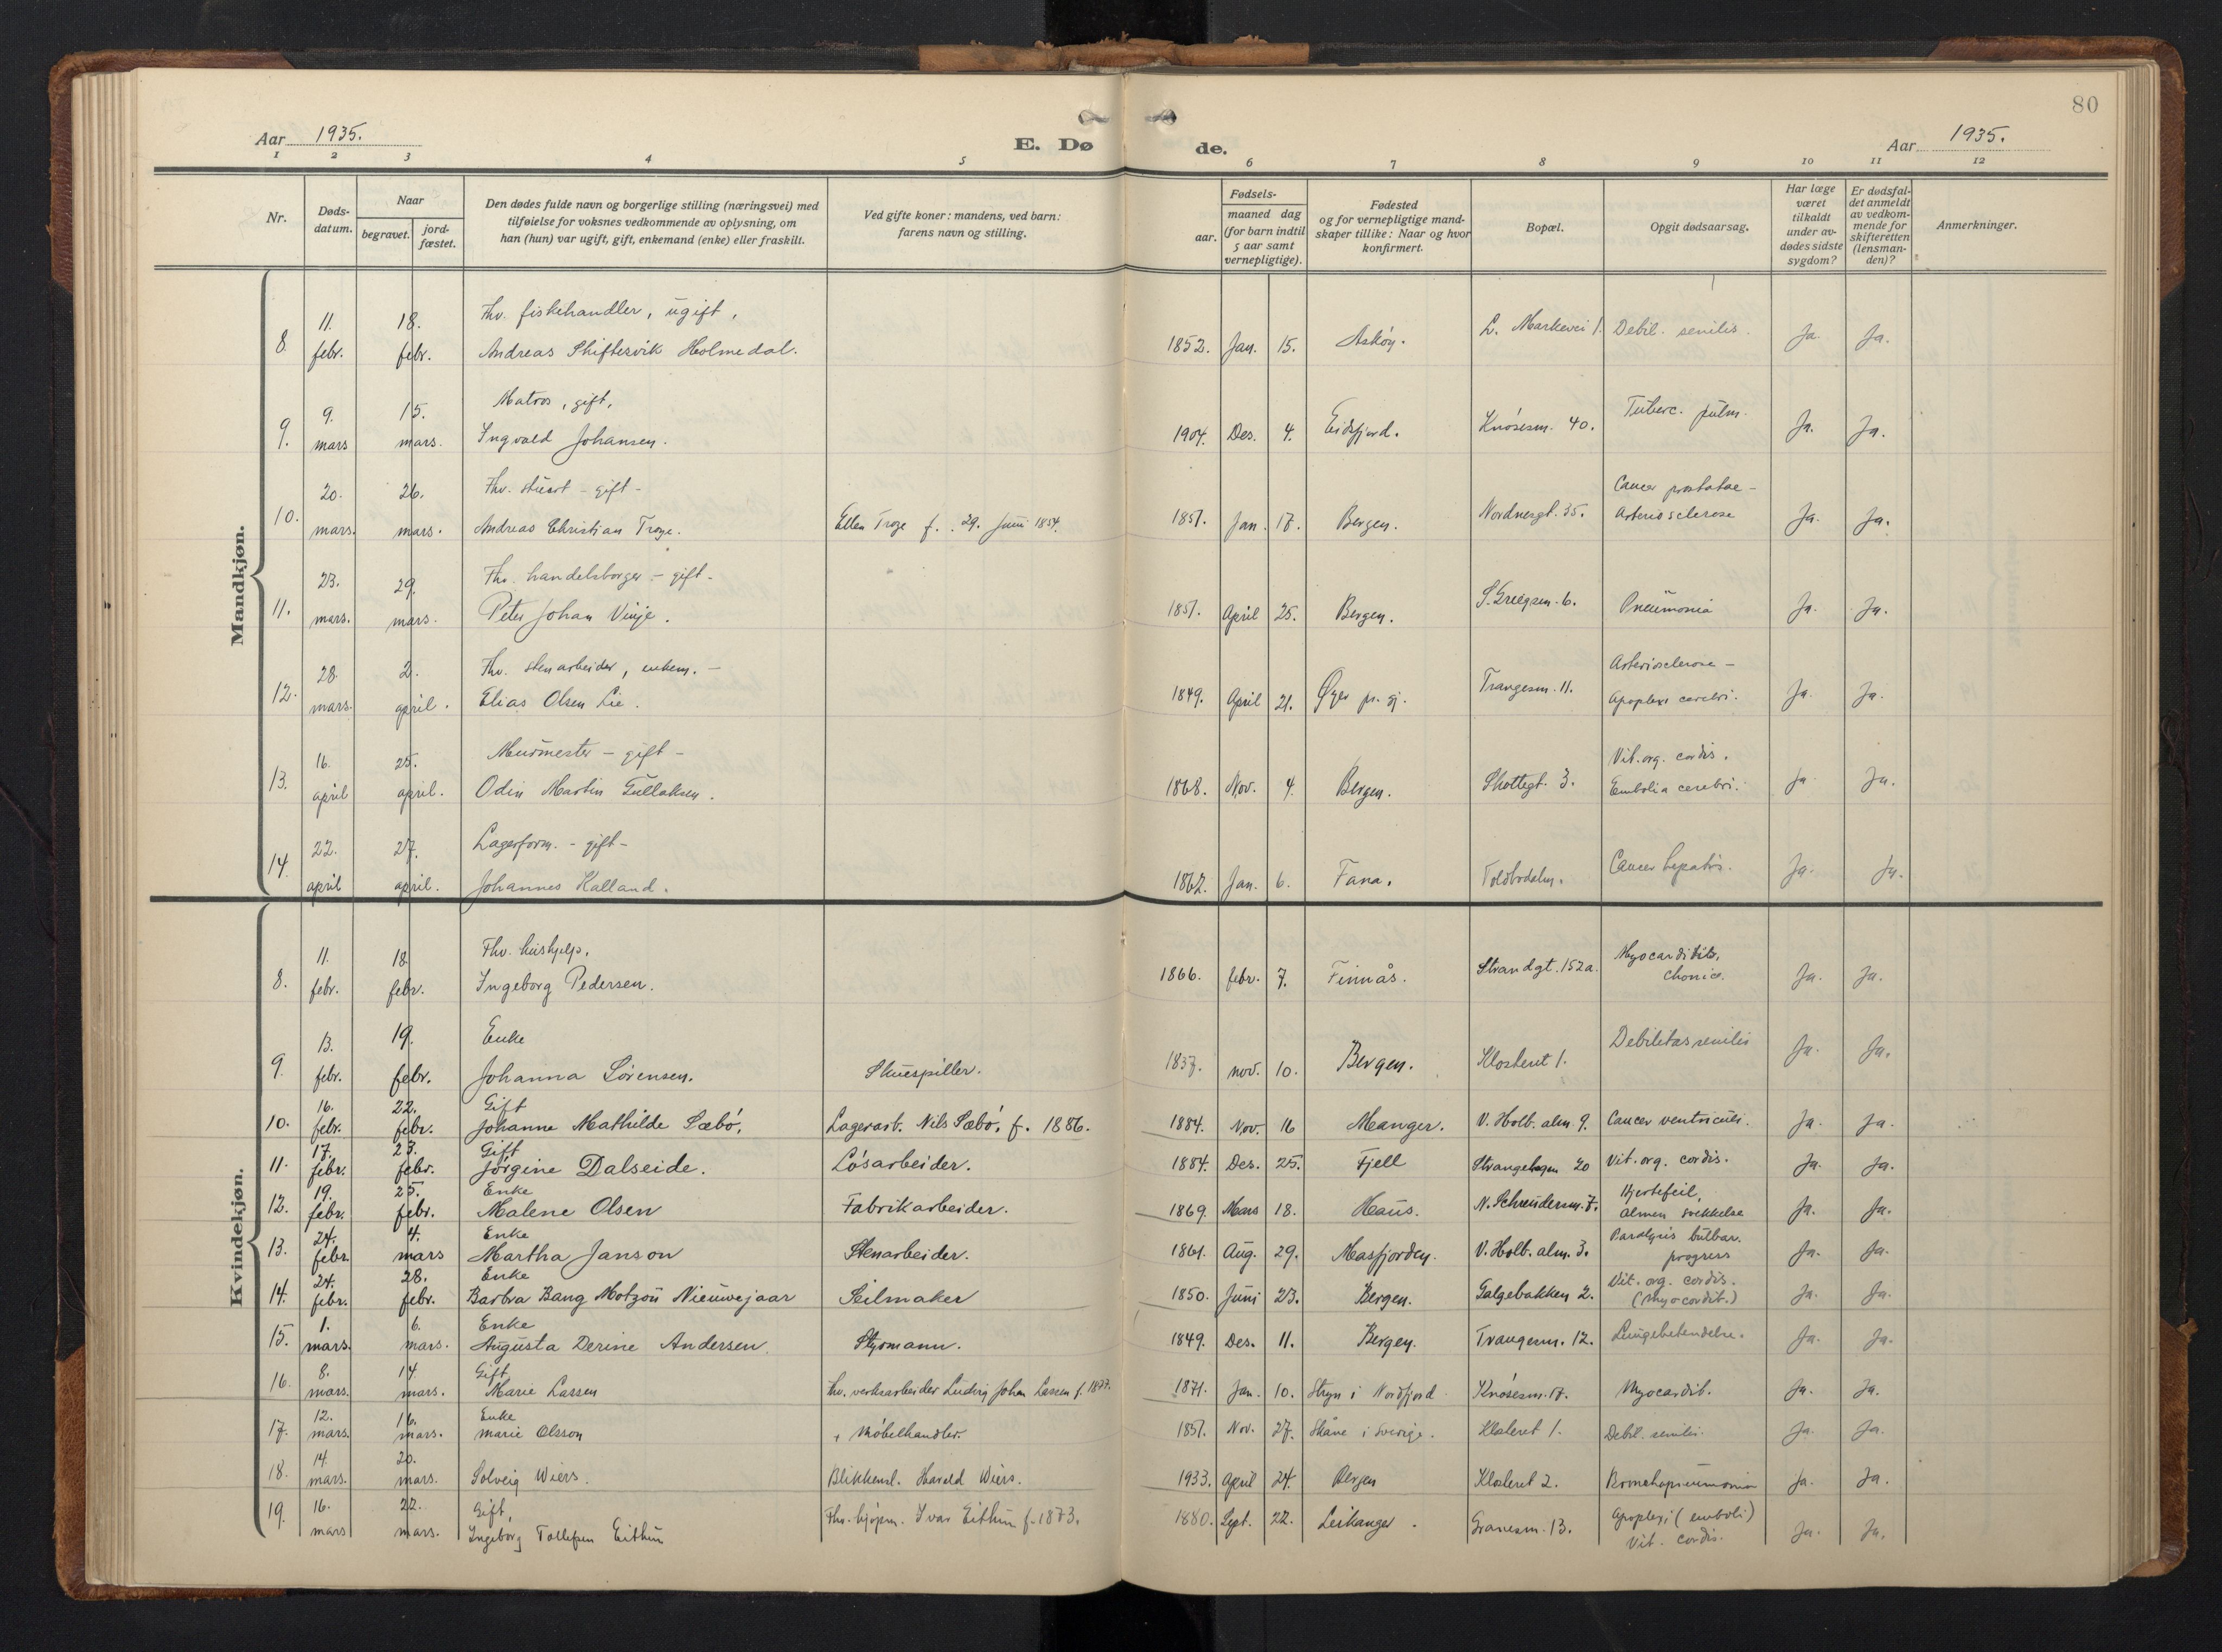 80
Aar 1935.
E. Dø
de.
Aar 1935.
1 2 3 4 5 6 7 8 9 10 11 12
Nr.
Døds-
datum.
Naar
begravet.
jord-
fæstet.
Den dødes fulde navn og borgerlige stilling (næringsvei) med
tilføielse for voksnes vedkommende av oplysning, om
han (hun) var ugift, gift, enkemand (enke) eller fraskilt.
Ved gifte koner: mandens, ved barn:
farens navn og stilling.
aar.
Fødsels-
maaned dag
(for barn indtil
5 aar samt
vernepligtige).
Fødested
og for vernepligtige mand-
skaper tillike: Naar og hvor
konfirmert.
Bopæl.
Opgit dødsaarsag.
Har læge
været
tilkaldt
under av-
dødes sidste
sygdom?
Er dødsfal-
det anmeldt
av vedkom-
mende for
skifteretten
(lensman-
den)?
Anmerkninger.
Mandkjøn.
11. 18. Fhv. fiskehandler, ugift,
8. febr. febr. Andreas Skiftesvik Holmedal. 1852. Jan. 15. Askøy. L. Markevei 1. Debil. senilis. Ja. Ja.
9. 15. Matros, gift, Tuberc. pulm.
9. mars mars. Ingvald Johansen. 1904. Des. 4. Eidfjord. Knøsesm. 40. Ja. Ja.
20. 26. Fhv. stuert - gift - Cancer prostatae -
10. mars. mars. Andreas Christian Troye. Ellen Troye f. 29. Juni 1854. 1851. Jan. 17. Bergen. Nordnesgt. 35. Arteriosclerose Ja. Ja.
23. 29. Fhv. handelsborger - gift -
11. mars. mars. Peter Johan Vinje. 1851. April 25. Bergen. 6. Pneumonia Ja. Ja.
28. 2. Fhv. stenarbeider, enkem. - Arteriosclerose -
12. mars. april. Elias Olsen Lie. 1849. April 21. pr. gj. Trangesm. 11. Apoplexi cerebri. Ja. Ja.
16. 25. Murmester - gift - Vit. org. cordis.
13. april april. Odin Martin Gullaksen. 1868. Nov. 4. Bergen. Skottegt. 3. Embolia cerebri. Ja. Ja.
22. 27. Lagerform. - gift -
14. april april. Johannes Halland. 1862. Jan. 6. Fana. Toldbodalm. Cancer hepatis. Ja. Ja.
Kvindekjøn.
11. 18 Fhv. hushjelp. Myocarditits,
8. febr. febr. Ingeborg Pedersen. 1866. febr. 7. Finnås. Strandgt. 152a. chonica. Ja. Ja.
13. 19. Enke
9. febr. febr. Johanna Sørensen. Skuespiller. 1837. nov. 10. Bergen. Klosteret 1. Debilitas senilis Ja. Ja.
16. 22. Gift
10. febr. febr. Johanne Mathilde Sæbø, Lagerarb. Nils Sæbø, f. 1886. 1884. Nov. 16 Manger. V. Holb. alm. 9. Cancer ventriculi. Ja. Ja.
17. 23. Gift
11. febr. febr. Jørgine Dalseide. Løsarbeider. 1884. Des. 25. Fjell Strangehagen 20 Vit. org. cordis. Ja. Ja.
19. 25. Enke Hjertefeil,
12. febr. febr. Malene Olsen Fabrikarbeider. 1869. Mars 18. Haus. N. Schreudersm. 7. almen svekkelse Ja. Ja.
24. 4. Enke Paralysis bulbar.
13. febr. mars Martha Janson Stenarbeider. 1861. Aug. 29. Masfjorden. V. Holb. alm. 3. progress Ja. Ja.
24. 28. Enke Vit. org. cordis.
14. febr. febr. Barbra Bang Motzou Nieuwejaar Seilmaker 1850. Juni 23. Bergen. Galgebakken 2. (Myocardit.) Ja. Ja.
1. 6. Enke
15. mars. mars. Augusta Derine Andersen. Styrmann. 1849. Des. 11. Bergen. Trangesm. 12. Lungebetendelse. Ja. Ja.
8. 14. Gift
16. mars. mars. Marie Lassen fhv. verksarbeider Ludvig Johan Lassen f. 1877. 1871. Jan. 10. Stryn i Nordfjord. Knøsesm. 17. Myocardit. Ja. Ja.
12. 16. Enke
17. mars. mars. Marie Olsson Møbelhandler. 1851. Nov. 27. Skåne i Sverige. Klosteret 1. Debil. senilis. Ja. Ja.
14 20.
18. mars. mars. Solveig Wiers. Blikkensl. Harald Wiers. 1933. April 24. Bergen Klosteret 2. Ja. Ja.
16. 22. Gift, Fhv. Ivar Eithun f. 1873. Apoplexi (emboli)
19. mars mars. Ingeborg Tollefsen Eithun 1880. Sept. 22. Leikanger. Granesm. 13. Vit. cordis. Ja. Ja.